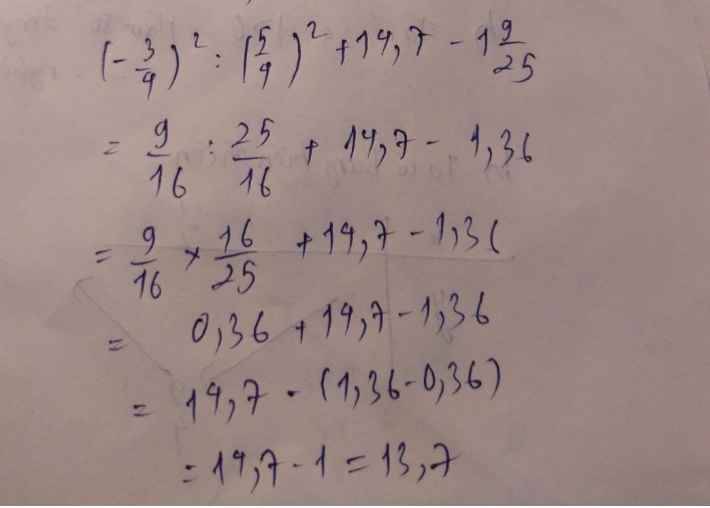 (-3/4)² : (5/4)² + 14,7 - 1 9/25
= 9/16 : 25/16 + 14,7 - 1,36
= 9/16 × 16/25 + 14,7 - 1,36
= 0,36 + 14,7 - 1,36
= 14,7 - (1,36 - 0,36)
= 14,7 - 1 = 13,7